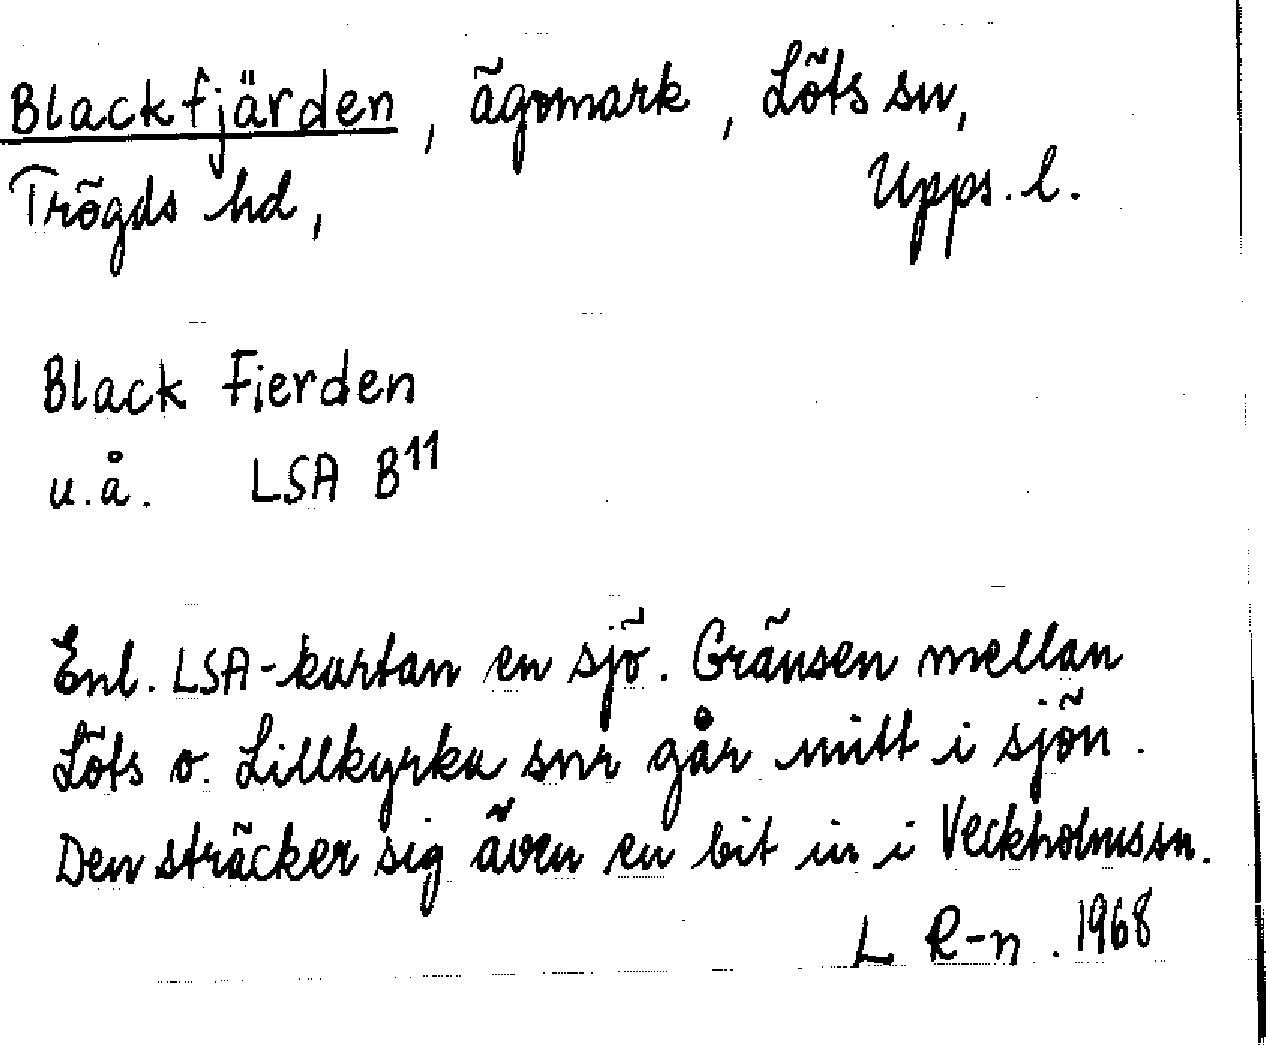 Blackfjärden, ägomark, Löts sn,
Trögds hd, Upps. l.
Black Fierden
u.å. LSA B¹¹
Enl. LSA-kartan en sjö. Gränsen mellan
Löts o. Lillkyrka snr går mitt i sjön.
Den sträcker sig även en bit in i Veckholmssn.
L R-n. 1968